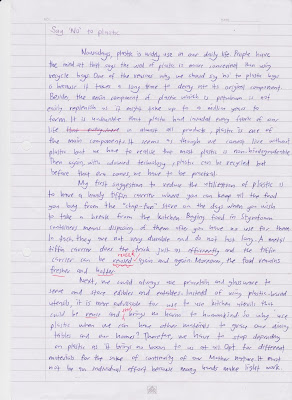 Say 'No' to plastic
Nowadays, plastic is widely use in our daily life. People have
the mind set that says the use of plastic is more convenient than using
recycle bags. One of the reasons why we should say no to plastic bags
is because it takes a long time to decay into its original component.
Beside, the main component of plastic which is petroleum is not
easily replenish as it might take up to a million years to
form. It is undeniable that plastic had invaded every facets of our
life is almost all products, plastic is one of
the main components. It seems as though we cannot live without
plastic but we have to realise that most plastic is non-biodegradable.
Then again, with advanced technology, plastic can be recycled but
before that era comes, we have to be practical.
My first suggestion to reduce the utilisation of plastic is
to have a handy tiffin carrier where you can keep all the food
you bung from the "chap-fan" store on the days when you wish
to take a break from the kitchen. Buying food in Styrofoam
containers means disposing of them after you have no use for them.
In fact, they are not very durable and do not last long. A metal
tiffin carrier does the trick just as efficiently and the tiffin
carrier can be reused again and again. Moreover, the food remains
fresher and hotter.
Next, we could always use porcelain and glassware to
serve and store edibles and eatables. Instead of using plastic-based
utensils, it is more advisable for use to use kitchen utensils that
could be reuse and bring no harm to humankind. So why use
plastic when we can have other materials to grace our dining
tables and our homes? Therefore, we have to stop depending
on plastic as it brings no boon to us at all. Opt for different
materials for the sake of continuity of our Mother Nature. It must
not be an individual effort because many hands make light work.